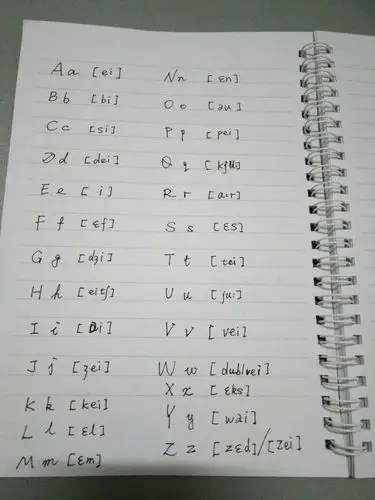 A a [ei]
B b [bi]
C c [si]
D d [dei]
E e [i]
F f [ɛf]
G g [dʒi]
H h [eitʃ]
I i [ai]
J j [ʒei]
K k [kei]
L l [ɛl]
M m [ɛm]
N n [ɛn]
O o [əu]
P p [pei]
Q q [kju]
R r [a:r]
S s [ɛs]
T t [tei]
U u [ju:]
V v [vei]
W w [dublvei]
X x [ɛks]
Y y [wai]
Z z [zɛd]/[zei]